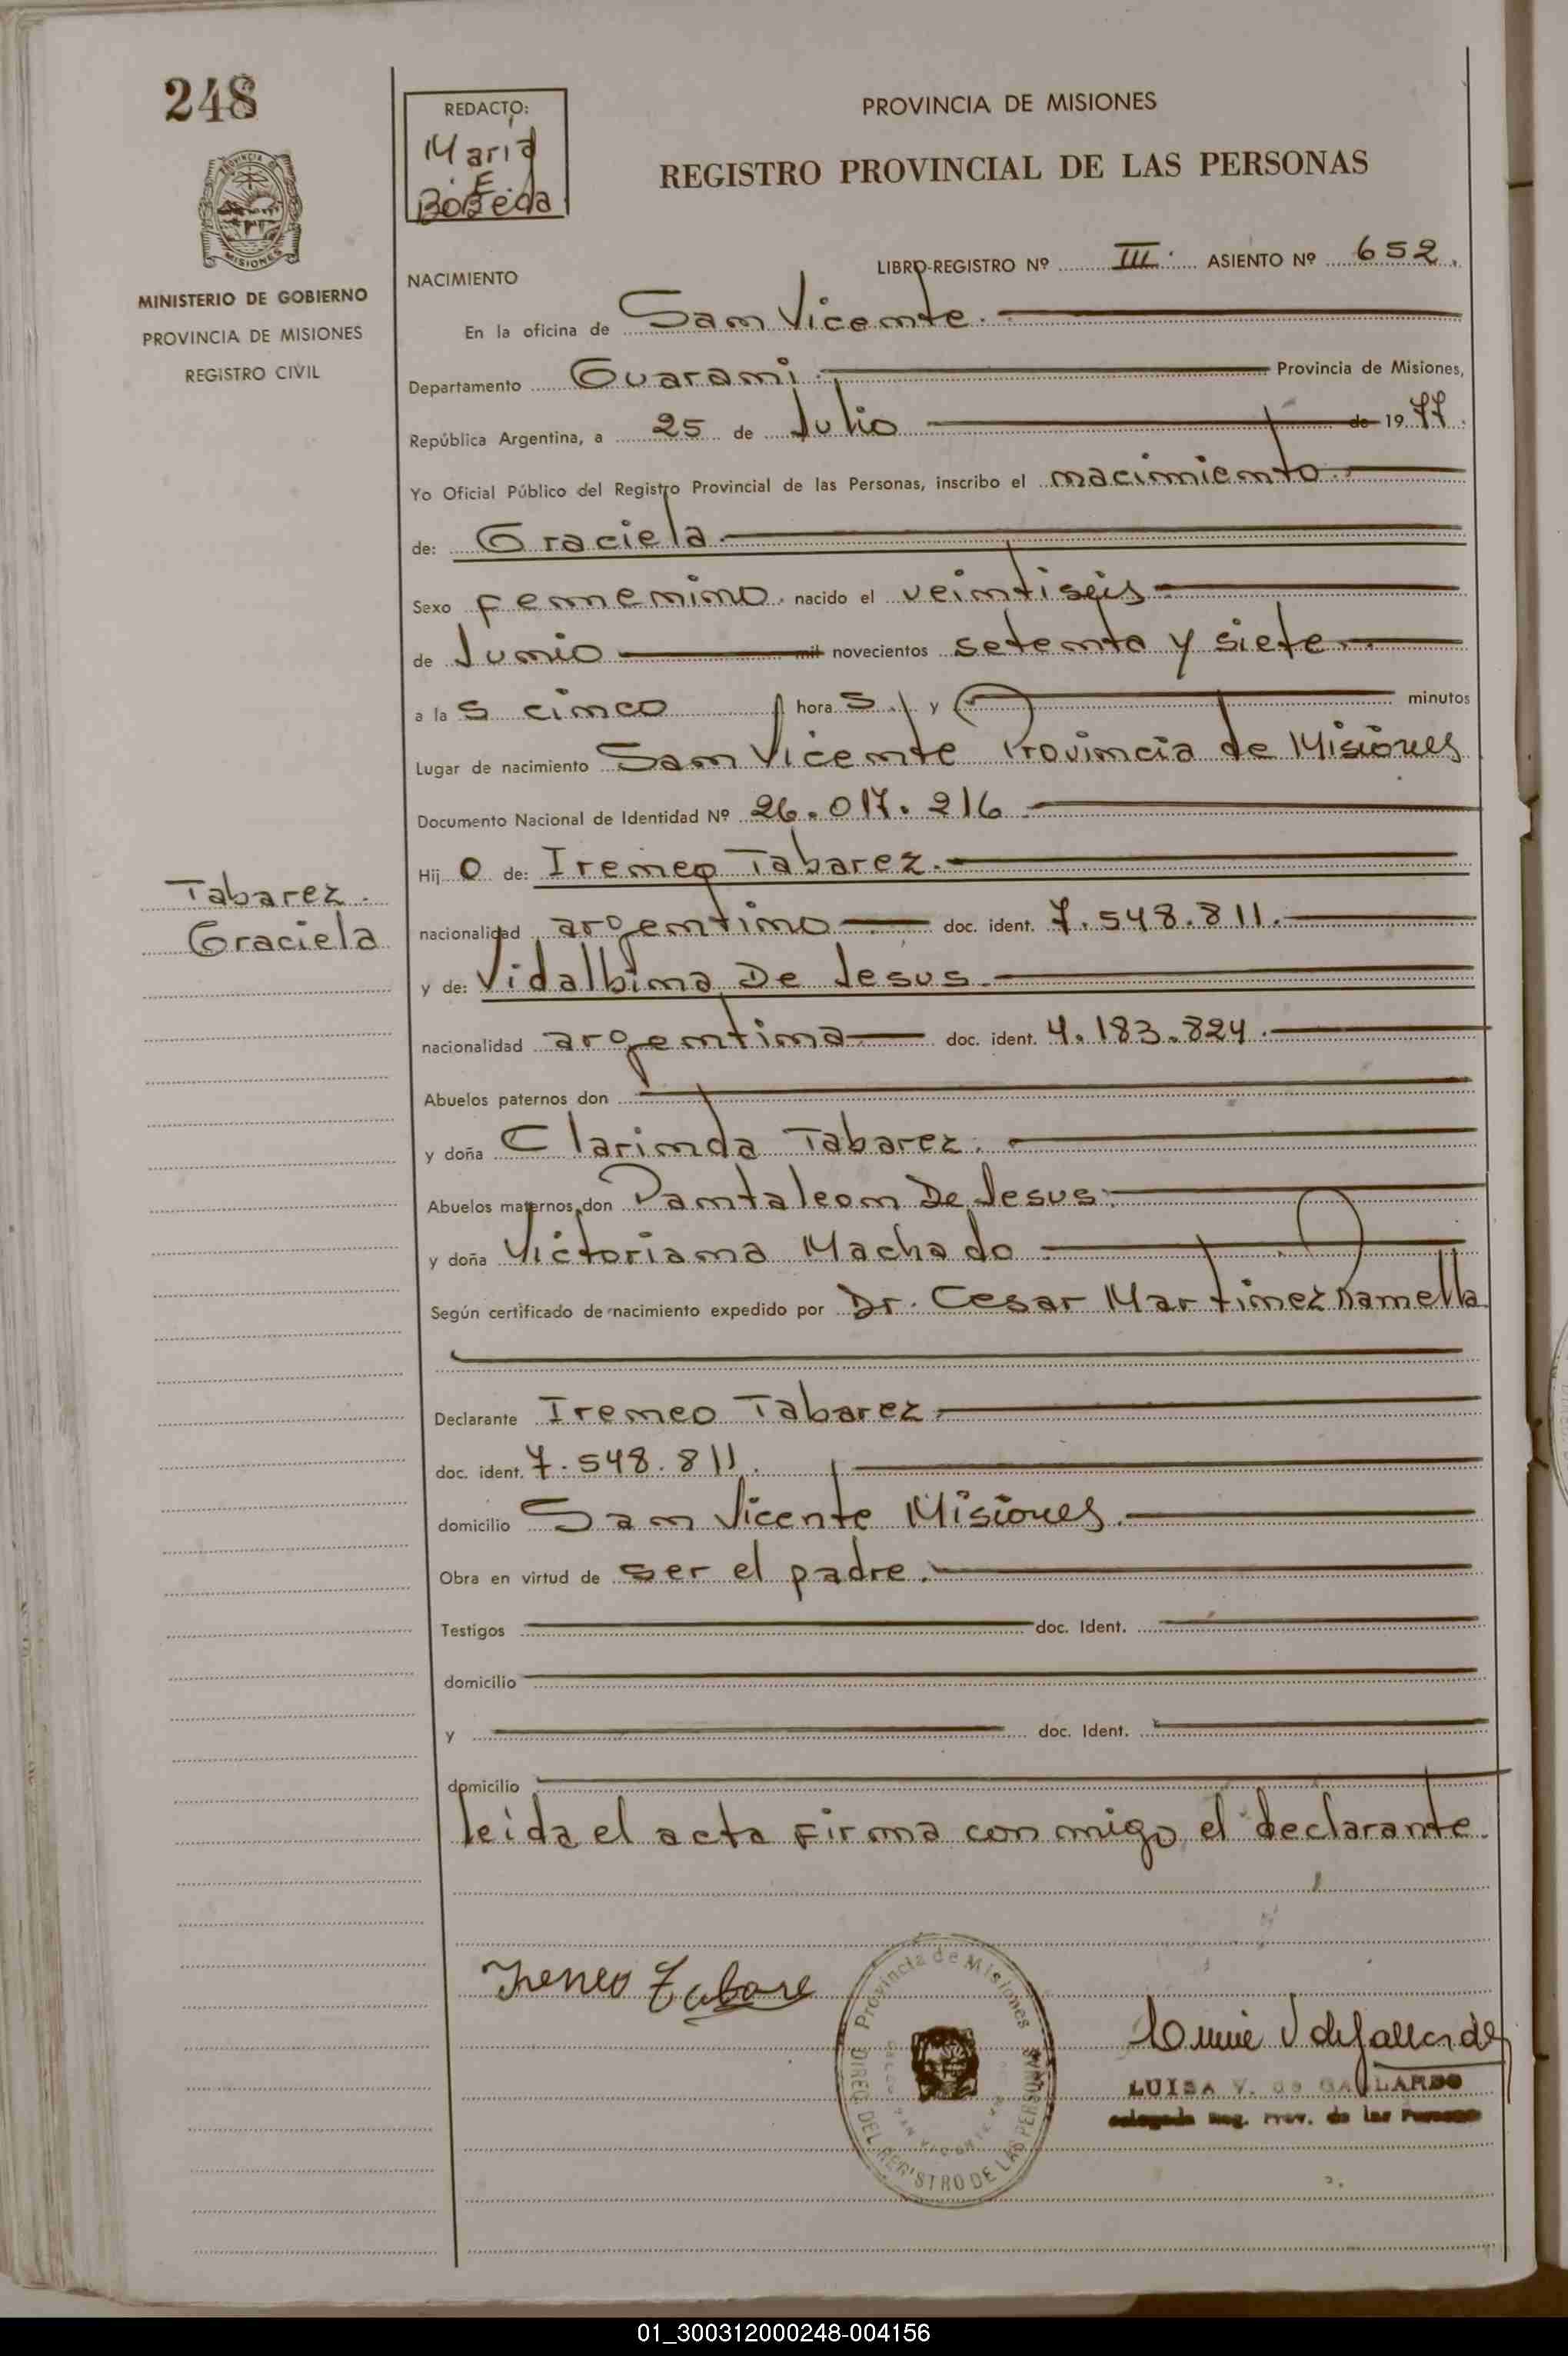 248
REDACTÓ:
Maria
E.
Bobeda
PROVINCIA DE MISIONES
REGISTRO PROVINCIAL DE LAS PERSONAS
PROVINCIA DE
MISIONES
MINISTERIO DE GOBIERNO
PROVINCIA DE MISIONES
REGISTRO CIVIL
LIBRO-REGISTRO Nº III. ASIENTO Nº 652.
NACIMIENTO
En la oficina de San Vicente.
Departamento Guarani Provincia de Misiones,
República Argentina, a 25 de Julio de 1977.
Yo Oficial Público del Registro Provincial de las Personas, inscribo el nacimiento
de: Graciela
Sexo femenino. nacido el veintiseis
de Junio mil novecientos setenta y siete
a las cinco horas y minutos
Lugar de nacimiento San Vicente Provincia de Misiones
Documento Nacional de Identidad Nº 26.017.216
Hijo de: Ireneo Tabarez.
Tabarez.
Graciela
nacionalidad argentino doc. ident. 7.548.811.
y de: Vidalbina De Jesus.
nacionalidad argentina doc. ident. 4.183.824.
Abuelos paternos don
y doña Clarinda Tabarez.
Abuelos maternos don Pantaleon De Jesus.
y doña Victoriana Machado
Según certificado de nacimiento expedido por Dr. Cesar Martinez Ramella
Declarante Ireneo Tabarez
doc. ident. 7.548.811.
domicilio San Vicente Misiones.
Obra en virtud de ser el padre.
Testigos doc. Ident.
domicilio
y doc. Ident.
domicilio
leida el acta firma conmigo el declarante.
Ireneo Tabare
Provincia de Misiones
DIREC. DEL REGISTRO DE LAS PERSONAS
LUISA V. de GALLARDO
Delegada Reg. Prov. de las Personas
01_300312000248-004156